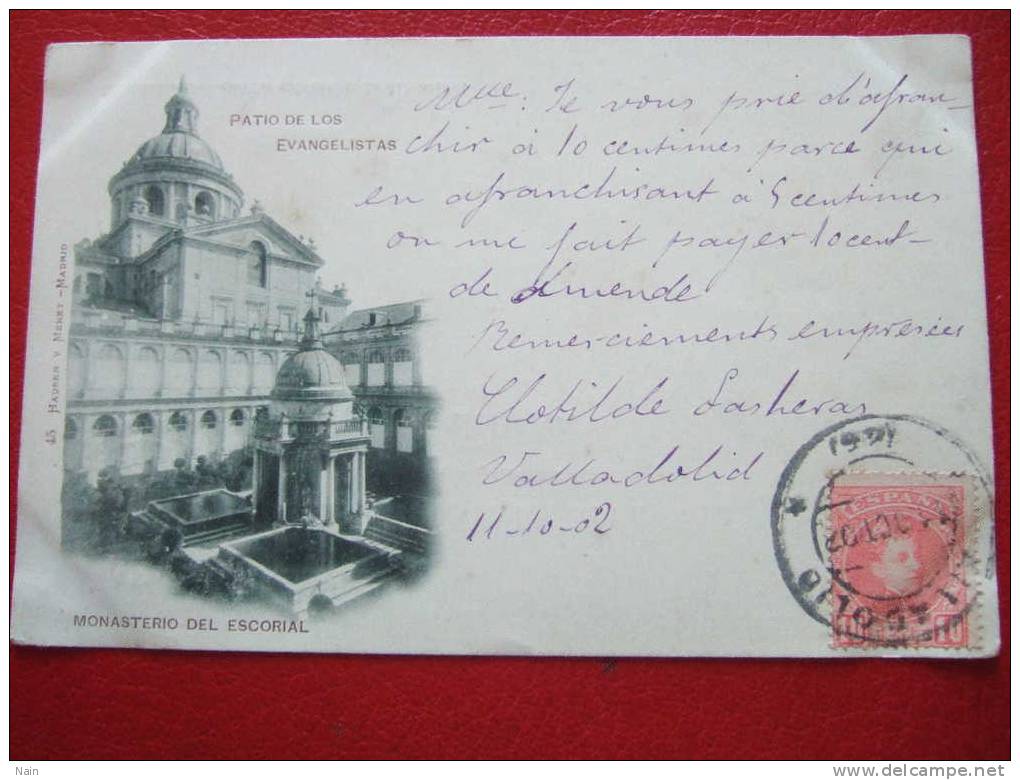 PATIO DE LOS
EVANGELISTAS
Mlle. Je vous prie d'afran-
chir à 10 centimes parce qui
en afranchisant à 5 centimes
on me fait payer 10 cent-
de amende
Remerciements empresées
Clotilde Lasheras
Valladolid
11-10-02
45 HAUSER Y MENET - MADRID
MONASTERIO DEL ESCORIAL
ESPAÑA
OCT 02
10 10
Nain
www.delcampe.net